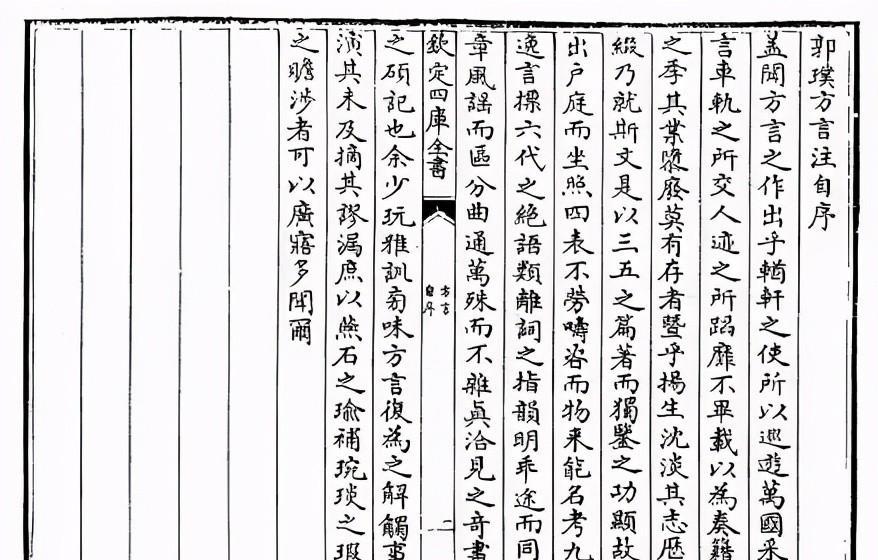 郭璞方言注自序
蓋聞方言之作出乎輶軒之使所以巡遊萬國采
言車軌之所交人迹之所蹈靡不畢載以為奏籍
之季其業隳廢莫有存者暨乎揚生沈淡其志歴
綴乃就斯文是以三五之篇著而獨鑒之功顯故
出戶庭而坐照四表不勞疇咨而物來能名考九
逸言摽六代之絶語類離詞之指韻明乖途而同
章風謡而區分曲通萬殊而不雜真洽見之奇書
欽定四庫全書
方言
自序
二
之碩記也余少玩雅訓旁味方言復為之解觸事
演其未及摘其謬漏庶以燕石之瑜補琬琰之瑕
之瞻涉者可以廣寤多聞爾